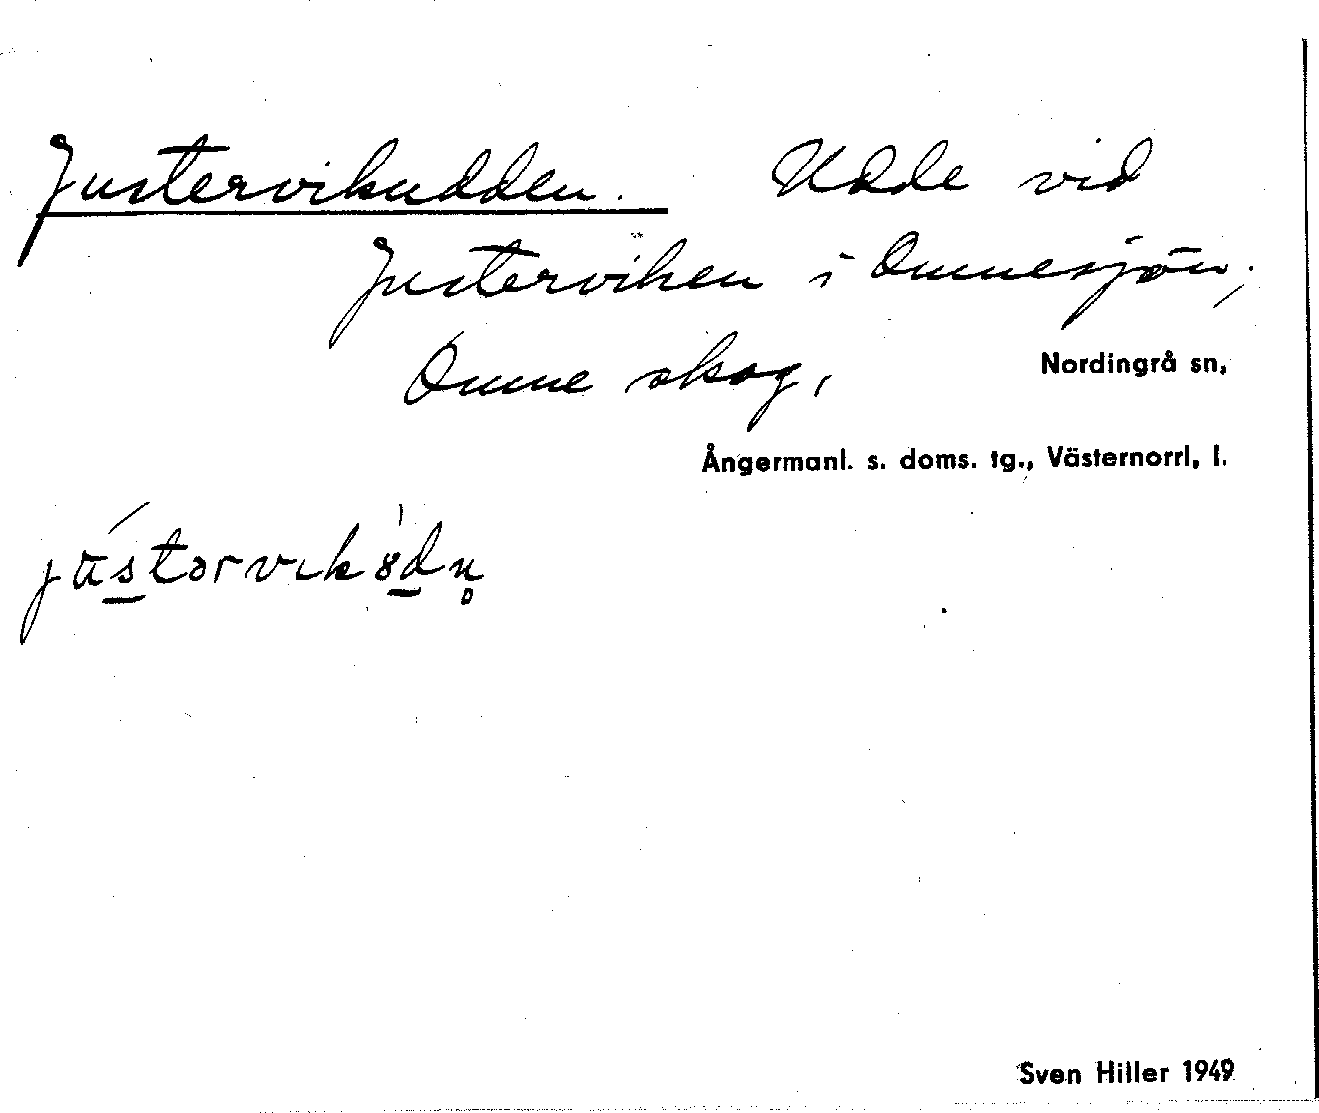 Justervikudden. Udde vid
Justerviken i Omnesjön,
Omne skog, Nordingrå sn,
Ångermanl. s. doms. tg., Västernorrl, l.
Sven Hiller 1949